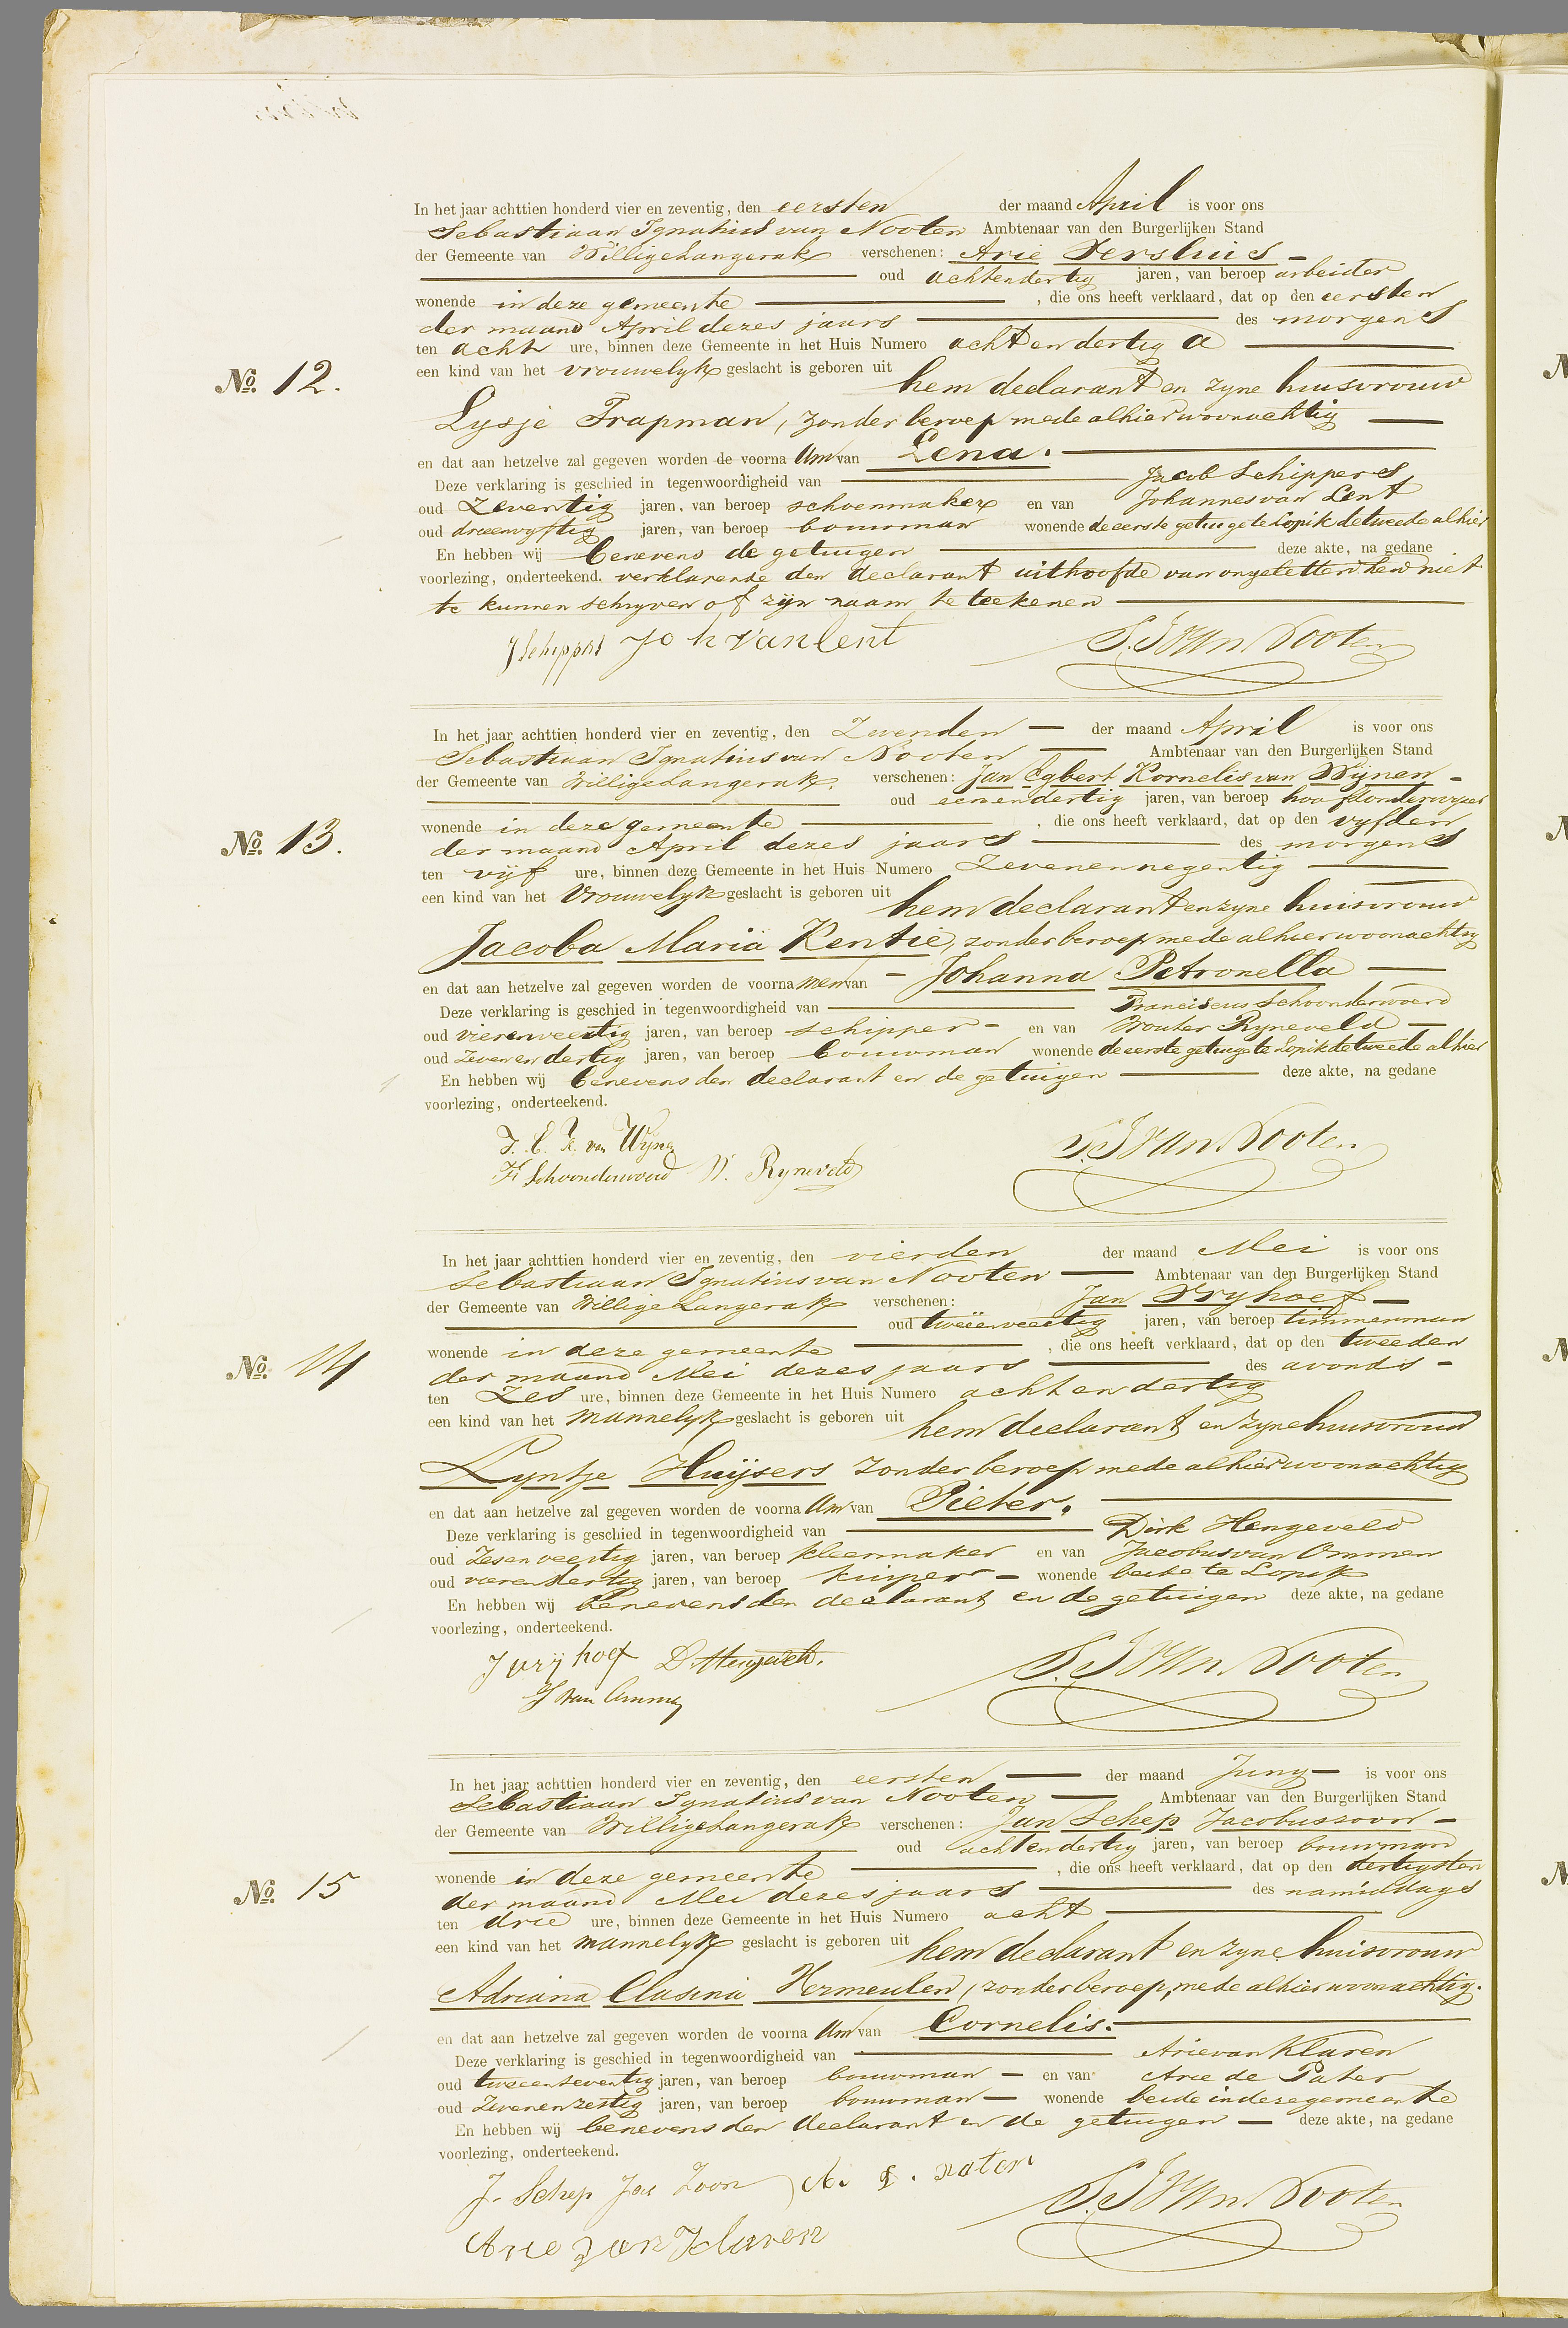 In het jaar achttien honderd vier en zeventig, den eersten der maand April is voor ons
Sebastiaan Ignatius van Nooten Ambtenaar van den Burgerlijken Stand
der Gemeente van Willige Langerak verschenen: Arie Versluis
oud achtendertig jaren, van beroep arbeider
wonende in deze gemeente , die ons heeft verklaard, dat op den eersten
der maand April dezes jaars des morgens
ten acht ure, binnen deze Gemeente in het Huis Numero acht en dertig a
No. 12.
een kind van het vrouwelyk geslacht is geboren uit hem declarant en zyne huisvrouw
Lysje Trapman, zonder beroep mede alhier woonachtig
en dat aan hetzelve zal gegeven worden de voorna am van Lena.
Deze verklaring is geschied in tegenwoordigheid van Jacob Schippers
oud Zeventig jaren, van beroep schoenmaker en van Johannes van Lent
oud drieenvyftig jaren, van beroep bouwman wonende de eerste getuige te Lopik de tweede alhier
En hebben wij benevens de getuigen deze akte, na gedane
voorlezing, onderteekend. verklarende den declarant uithoofde van ongeletterdheid niet
te kunnen schryven of zijn naam te teekenen
J Schippers Joh van Lent S. I van Nooten
In het jaar achttien honderd vier en zeventig, den Zevenden der maand April is voor ons
Sebastiaan Ignatius van Nooten Ambtenaar van den Burgerlijken Stand
der Gemeente van Willige Langerak. verschenen: Jan Egbert Kornelis van Wijnen
oud eenendertig jaren, van beroep hoofdonderwyzer
wonende in deze gemeente , die ons heeft verklaard, dat op den vyfden
No. 13.
der maand April dezes jaars des morgens
ten vijf ure, binnen deze Gemeente in het Huis Numero Zevenennegentig
een kind van het Vrouwelyk geslacht is geboren uit hem declarant en zyne huisvrouw
Jacoba Maria Kentie, zonder beroep mede alhier woonachtig
en dat aan hetzelve zal gegeven worden de voorna men van Johanna Petronella
Deze verklaring is geschied in tegenwoordigheid van Franciscus Schoonderwoerd
oud vierenveertig jaren, van beroep schipper en van Wouter Ryneveld
oud Zevenendertig jaren, van beroep bouwman wonende de eerste getuige te Lopik de tweede alhier
En hebben wij benevens den declarant en de getuigen deze akte, na gedane
voorlezing, onderteekend.
J. E. K. van Wijnen
F. Schoonderwoerd W. Ryneveld S. I van Nooten
In het jaar achttien honderd vier en zeventig, den vierden der maand Mei is voor ons
Sebastiaan Ignatius van Nooten Ambtenaar van den Burgerlijken Stand
der Gemeente van Willige Langerak verschenen: Jan Vryhoef
oud tweeënveertig jaren, van beroep timmerman
wonende in deze gemeente , die ons heeft verklaard, dat op den tweeden
No. 14
der maand Mei dezes jaars des avonds
ten Zes ure, binnen deze Gemeente in het Huis Numero acht en dertig
een kind van het mannelyk geslacht is geboren uit hem declarant en zyne huisvrouw
Lyntje Huijsers zonder beroep mede alhier woonachtig
en dat aan hetzelve zal gegeven worden de voorna am van Pieter.
Deze verklaring is geschied in tegenwoordigheid van Dirk Hengeveld
oud Zesenveertig jaren, van beroep kleermaker en van Jacobus van Ommen
oud vierendertig jaren, van beroep kuiper wonende beide te Lopik
En hebben wij benevens den declarant en de getuigen deze akte, na gedane
voorlezing, onderteekend.
J vrijhoef D. Hengeveld. S. I van Nooten
J van Ommen
In het jaar achttien honderd vier en zeventig, den eersten der maand Juny is voor ons
Sebastiaan Ignatius van Nooten Ambtenaar van den Burgerlijken Stand
der Gemeente van Willige Langerak verschenen: Jan Schep Jacobuszoon
oud achtendertig jaren, van beroep bouwman
wonende in deze gemeente , die ons heeft verklaard, dat op den dertigsten
No. 15
der maand Mei dezes jaars des namiddags
ten drie ure, binnen deze Gemeente in het Huis Numero acht
een kind van het mannelyk geslacht is geboren uit hem declarant en zyne huisvrouw
Adriana Clasina Vermeulen, zonder beroep, mede alhier woonachtig.
en dat aan hetzelve zal gegeven worden de voorna am van Cornelis.
Deze verklaring is geschied in tegenwoordigheid van Arie van Klaren
oud tweeenzeventig jaren, van beroep bouwman en van Arie de Pater
oud Zevenenzestig jaren, van beroep bouwman wonende beide in deze gemeente
En hebben wij benevens den declarant en de getuigen deze akte, na gedane
voorlezing, onderteekend.
J. Schep Jac Zoon A. d. pater S. I van Nooten
Arie van Klaren